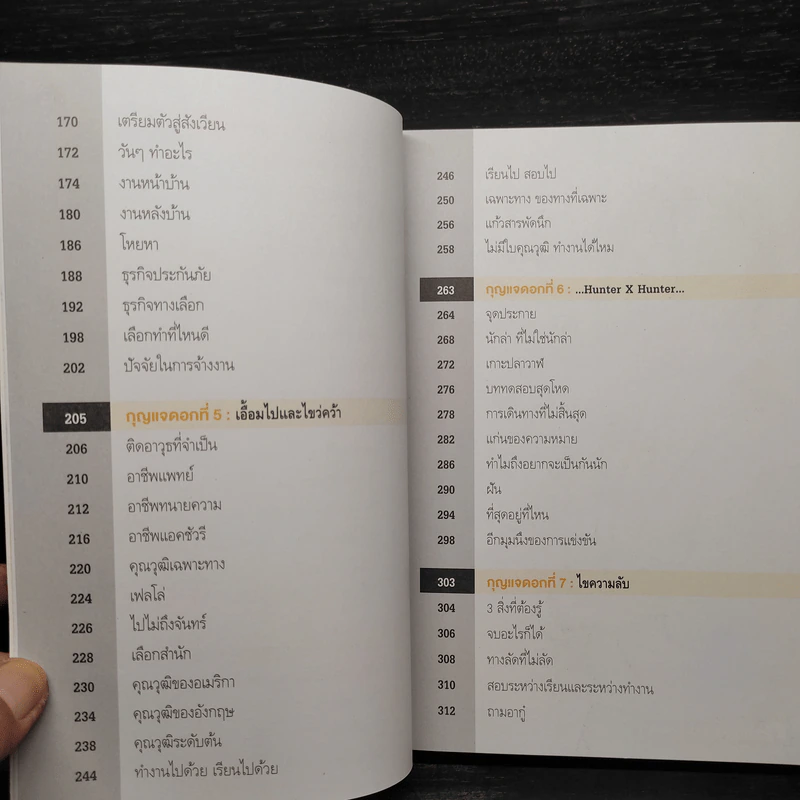 170 เตรียมตัวสู่สังเวียน
172 วันๆ ทำอะไร
174 งานหน้าบ้าน
180 งานหลังบ้าน
186 โหยหา
188 ธุรกิจประกันภัย
192 ธุรกิจทางเลือก
198 เลือกทำที่ไหนดี
202 ปัจจัยในการจ้างงาน
205 กุญแจดอกที่ 5 : เอื้อมไปและไขว่คว้า
206 ติดอาวุธที่จำเป็น
210 อาชีพแพทย์
212 อาชีพทนายความ
216 อาชีพแอคชัวรี
220 คุณวุฒิเฉพาะทาง
224 เฟลโล่
226 ไปไม่ถึงจันทร์
228 เลือกสำนัก
230 คุณวุฒิของอเมริกา
234 คุณวุฒิของอังกฤษ
238 คุณวุฒิระดับต้น
244 ทำงานไปด้วย เรียนไปด้วย
246 เรียนไป สอบไป
250 เฉพาะทาง ของทางที่เฉพาะ
256 แก้วสารพัดนึก
258 ไม่มีใบคุณวุฒิ ทำงานได้ไหม
263 กุญแจดอกที่ 6 : ...Hunter X Hunter...
264 จุดประกาย
268 นักล่า ที่ไม่ใช่นักล่า
272 เกาะปลาวาฬ
276 บททดสอบสุดโหด
278 การเดินทางที่ไม่สิ้นสุด
282 แก่นของความหมาย
286 ทำไมถึงอยากจะเป็นกันนัก
290 ฝัน
294 ที่สุดอยู่ที่ไหน
298 อีกมุมนึงของการแข่งขัน
303 กุญแจดอกที่ 7 : ไขความลับ
304 3 สิ่งที่ต้องรู้
306 จบอะไรก็ได้
308 ทางลัดที่ไม่ลัด
310 สอบระหว่างเรียนและระหว่างทำงาน
312 ถามอากู๋